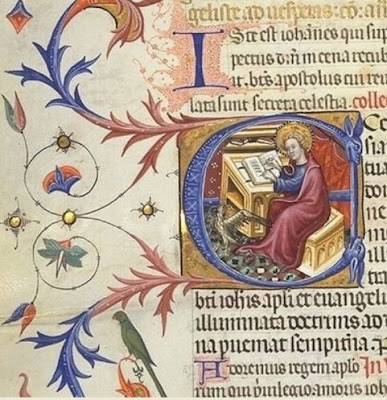 geliste ad uesperas: cō: an
Iste est iohānes qui sup
pectus dñi in cena recub
it. btūs apostolus cui reue
lata sunt secreta celestia. collec
ECc
sia
tua
bti iohis apli et euangeli
illuminata doctrinis ad
na pueniat sempitna
Adoremus regem aplo In
rum qui puilegio amoris ioh